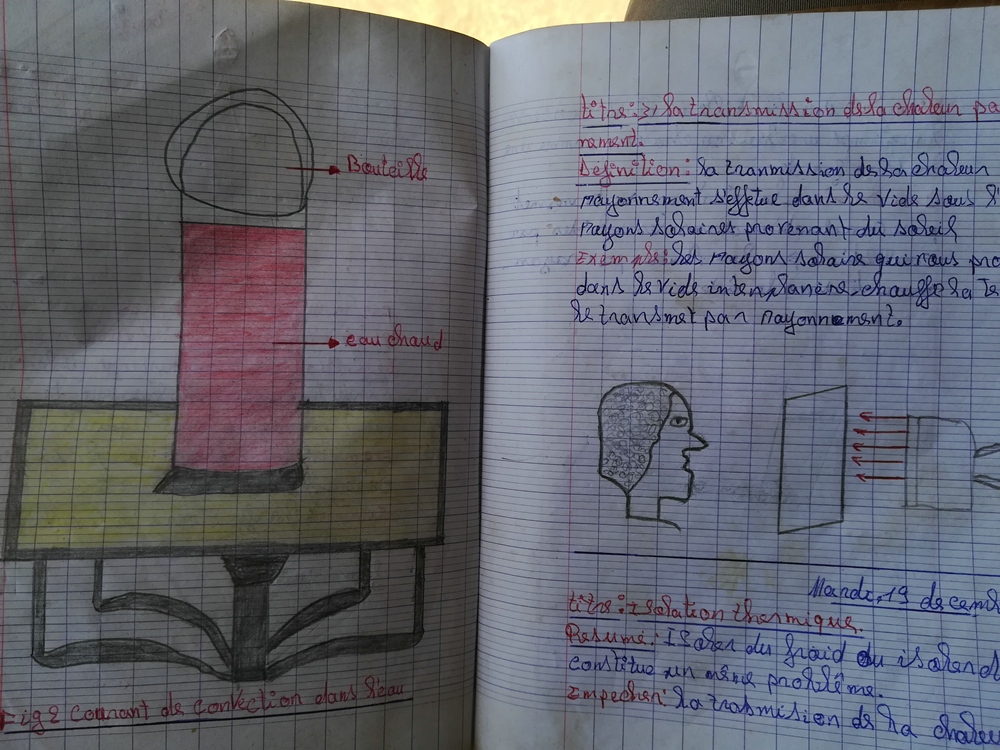 Bouteille
eau chaud
Fig 2 courant de convection dans l'eau
titre: 3, la transmission de la chaleur pa
nement.
Définition: la tranmission de la chaleur
rayonnement s'effetue dans le vide sous
rayons solaires provenant du soleil
Exemple: les rayons solaire qui nous pro
dans le vide interplanère chauffe la te
le transmet par rayonnement.
Mardi, 19 decemb
titre: isolation thermique.
Résumé: Isoler du froid ou isoler d
constitue un même problème.
Empecher: la trasmision de la chaleu